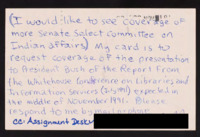 (I would like to see coverage of
more Senate Select committee on
Indian affairs) My card is to
request coverage of the presentation
to President Bush of the Report from
the Whitehouse Conference on Libraries and
Information Services expected in
the middle of November 1991. Please
respond to me by
cc: Assignment Desk